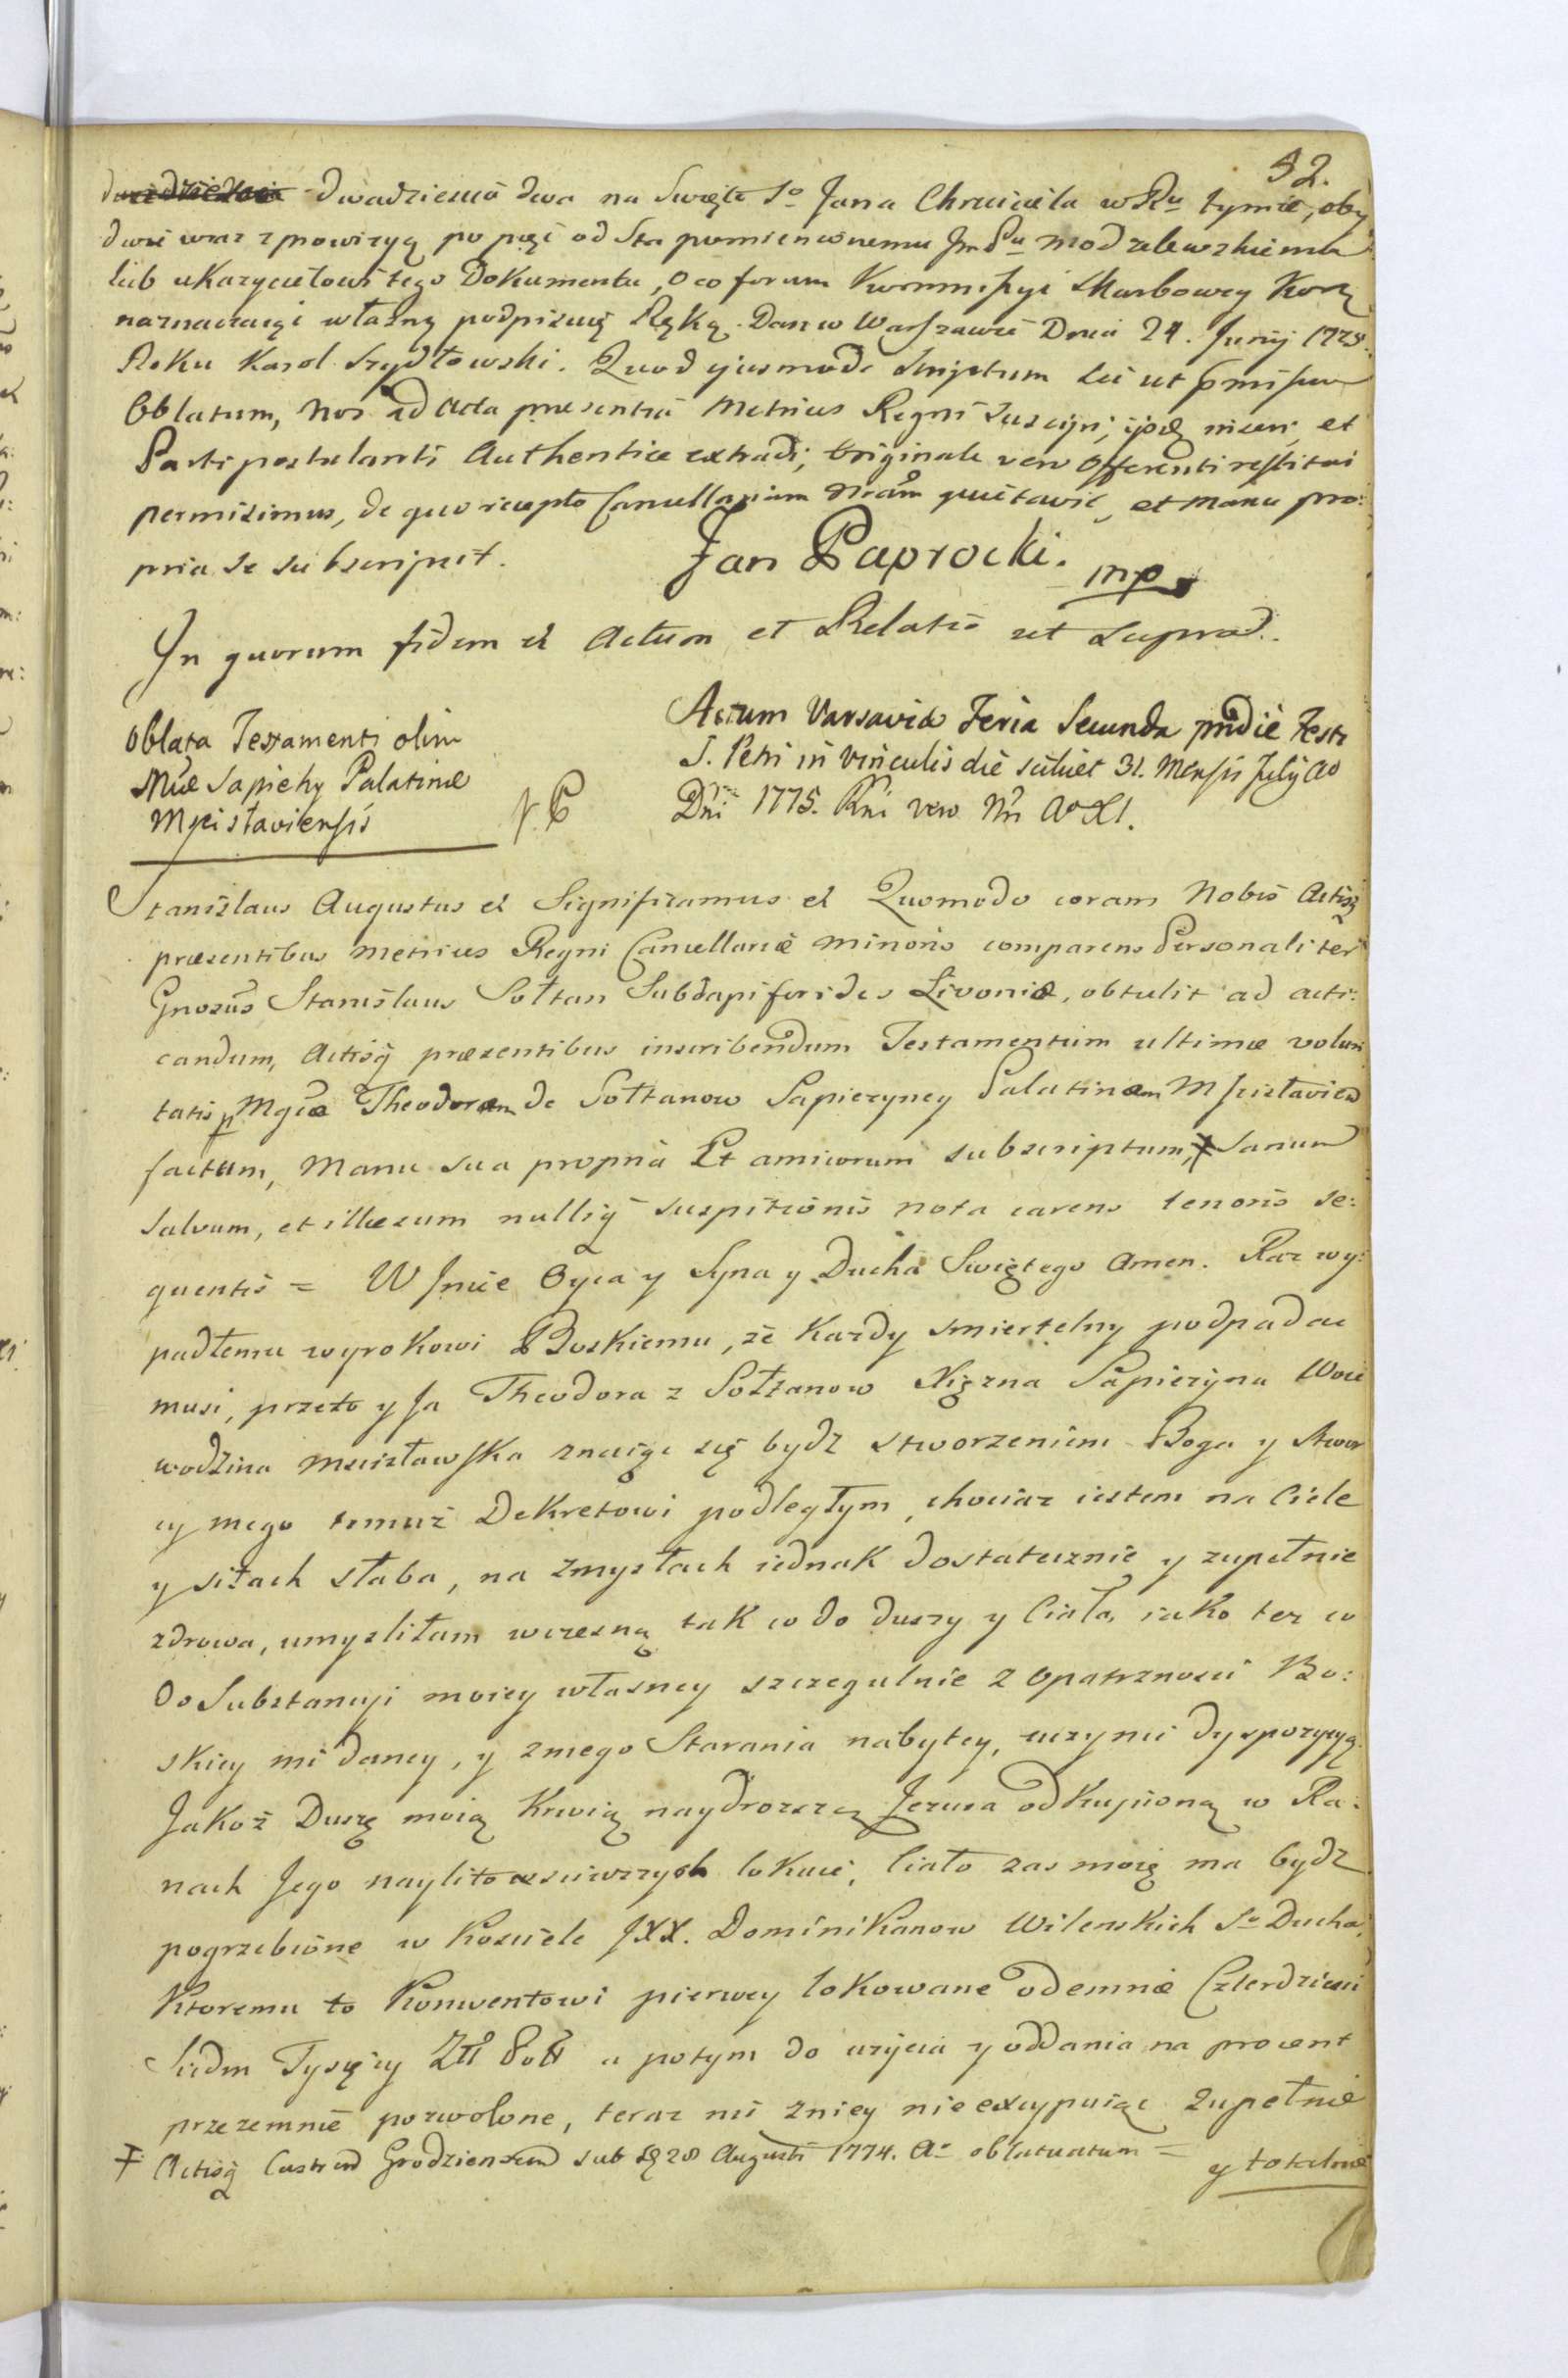 32.
dwadziescia dwa na Swięto So Jana Chrzciciela w Ru tymże, oby
dwie wraz z prowizyą po pięć od Sta pomienionemu Jm Pu Modzelewskiemu
lub ukazycielowi tego Dokumentu, o co forum Kommissyi Skarbowey Kor
naznaczaiąc własną podpisuię Ręką. Dan w Warszawie Dnia 24. Junij 1775
Roku Karol Szydłowski. Quod ejusmodi Scriptum sic ut pmissum
Oblatum, Nos ad Acta præsentia Metrices Regni suscipi, ijsq inseri, et
Parti postulanti Authentice extradi, Originale vero Offerenti restitui
permisimus, de quo recepto Cancellariam Nram quietavit, et manu pro:
pria se subscripsit. Jan Paprocki. mp
In quorum fidem et Actum et Relatio ut Supra.
Oblata Testamenti olim
Mcæ Sapiehy Palatinæ
Mscislaviensis
Actum Varsaviæ Feria Secunda pridie Festi
S. Petri in Vinculis die scilicet 31. Mensis Julij Ao
Dni 1775. Rni vero Nri Ao XI.
Stanislaus Augustus et Significamus et Quomodo coram Nobis Actisq
præsentibus Metrices Regni Cancellariæ Minoris comparens Personaliter
Gnosus Stanislaus Sołtan Subdapiferides Livoniæ, obtulit ad acti:
candum, Actisq præsentibus inscribendum Testamentum ultimæ volun
tatis p Mgcæ Theodoram de Sołtanow Sapiezyney Palatinam Mscislavien
factum, Manu sua propria Et amicorum subscriptum, ⨥ Sanum
Salvum, et illæsum nulliq suspitionis nota carens tenoris se:
quentis = W Jmie Oyca y Syna y Ducha Swiętego Amen. Raz wy:
padłemu wyrokowi Boskiemu, że każdy smiertelny podpadac
musi, przeto y Ja Theodora z Sołtanow Xięzna Sapiezyna Woie
wodzina Mscisławska znaiąc się bydz stworzeniem Boga y Stwor
cy mego temuż Dekretowi podległym, chociaz iestem na Ciele
y siłach słaba, na Zmysłach iednak dostatecznie y zupełnie
zdrowa, umysliłam wczesną tak co do duszy y Ciała, iako tez co
do Substancyi moiey własney szczegulnie z Opatrznosci Bo:
skiey mi daney, y z mego Starania nabytey, uczynić dyspozycyą
Jakoż Duszę moią Krwią naydrozszą Jezusa odkupioną w Ra:
nach Jego naylitosciwszych lokuię, Ciało zas moię ma bydz
pogrzebione w Kosciele JXX. Dominikanow Wilenskich So Ducha,
Ktoremu to Konwentowi pierwey lokowane odemnie Czterdziesci
Siedm Tysięcy Zł Pol a potym do uzycia y oddania na procent
przezemnie pozwolone, teraz nic z niey nie excypuiąc zupełnie
⨥ Actisq Castren Grodziensem sub 28 Augusti 1774. Ao oblatuatum =
y totalnie